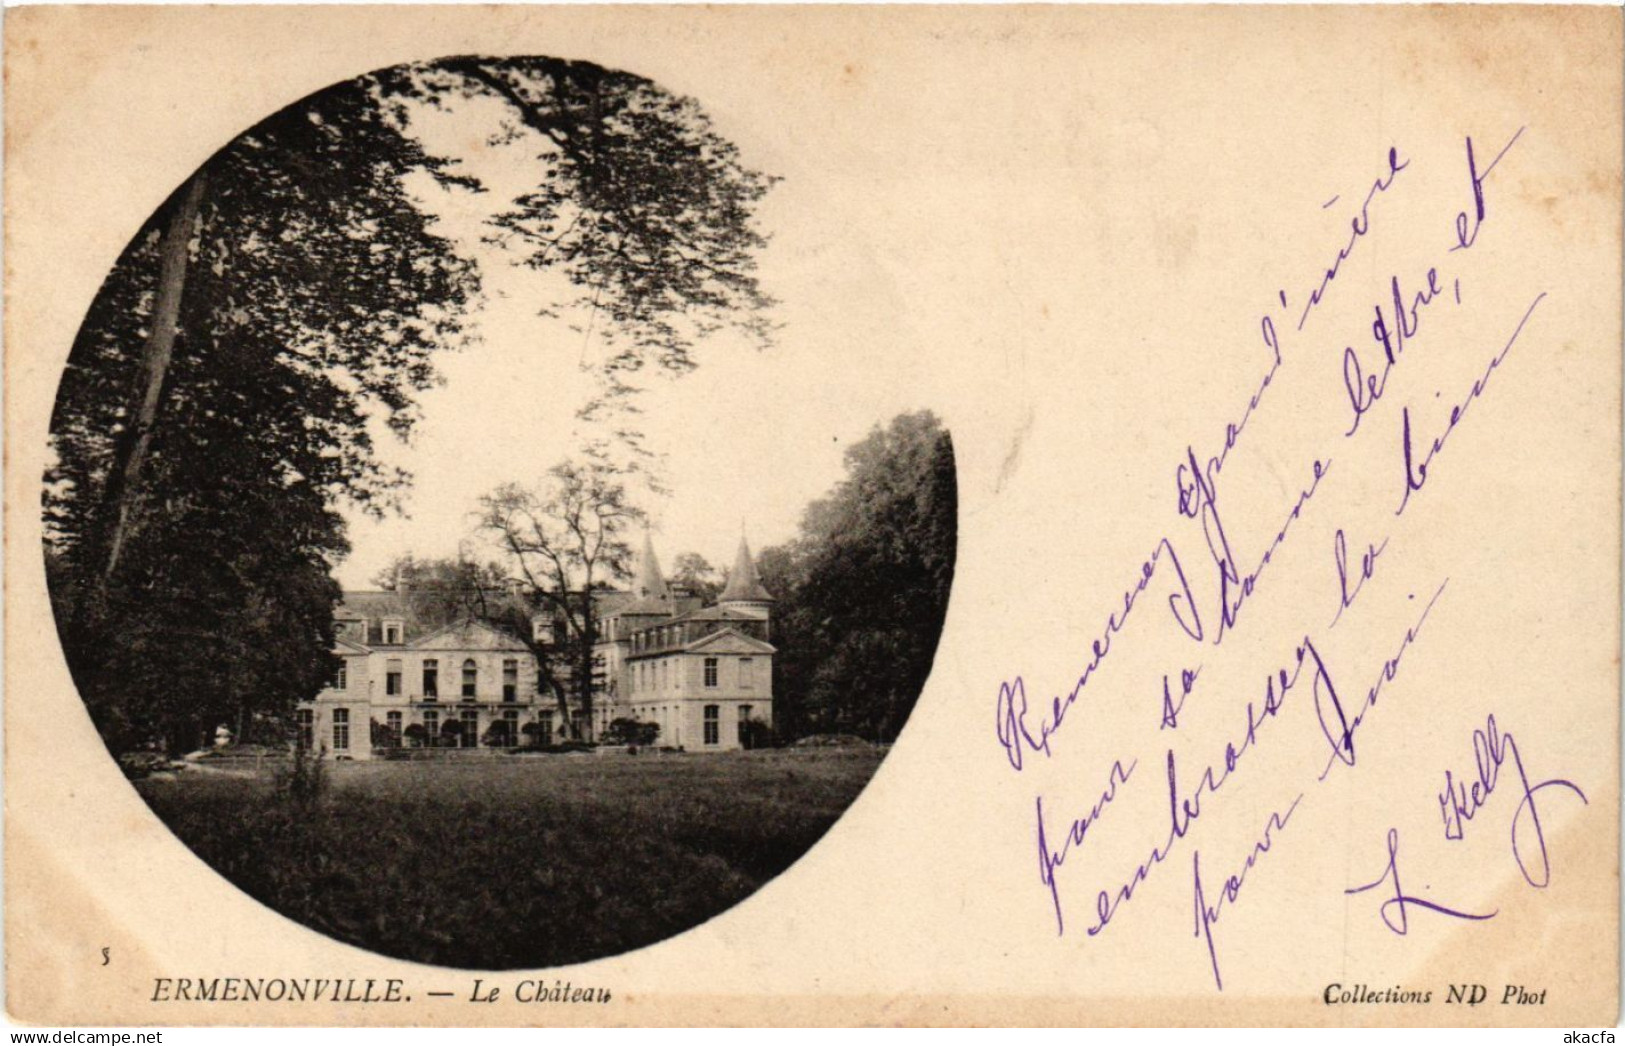 Remerciez grand'mère
pour sa bonne lettre, et
embrassez la bien
pour moi
L. Kelly
5
ERMENONVILLE. — Le Château
Collections ND Phot
delcampe.net
akacfa